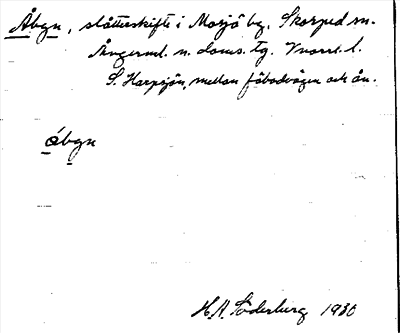 Åbgn, slåtterskifte i Mosjö by, Skorped sn.
Ångerml. n. doms. tg. Vnorrl. l.
S. Harpsjön, mellan fäbodvägen och ån.
åbgn
H.A. Söderberg 1930